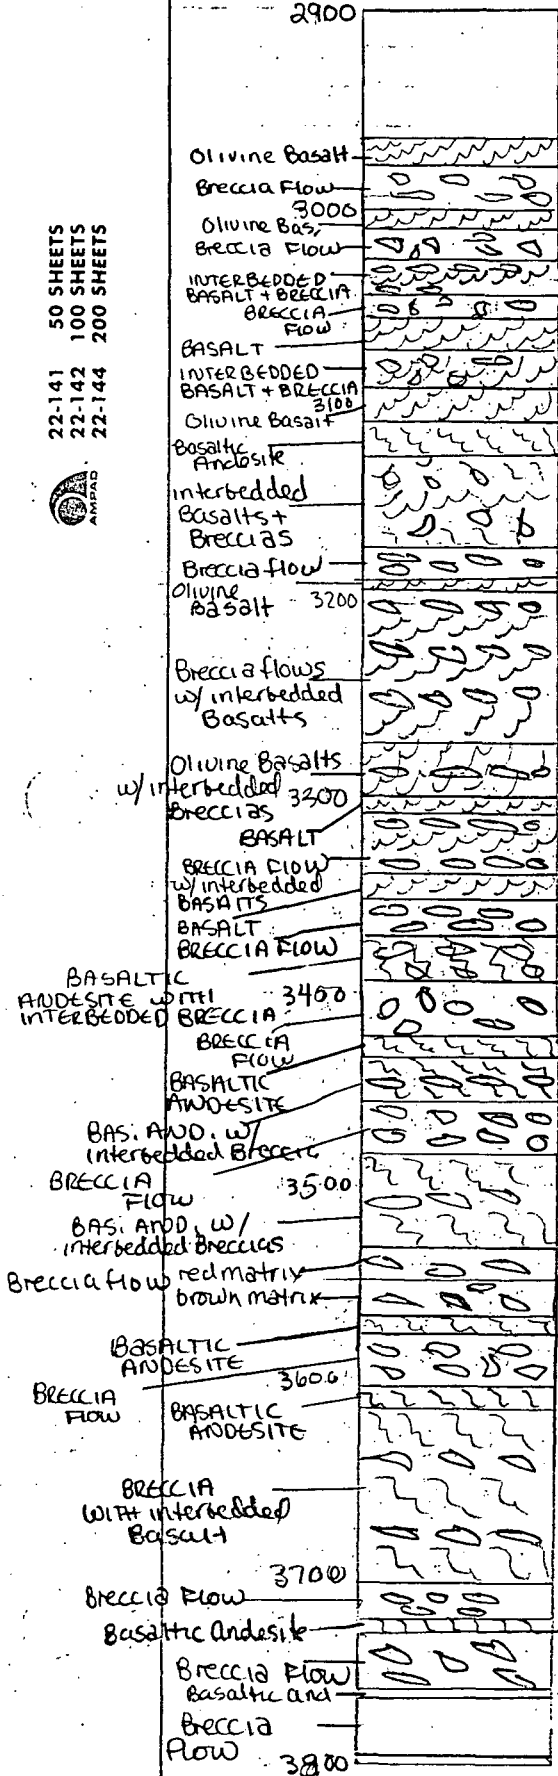 2900
Olivine Basalt
Breccia Flow
3000
Olivine Bas,
Breccia Flow
INTERBEDDED
BASALT + BRECCIA
BRECCIA
FLOW
BASALT
INTERBEDDED
BASALT + BRECCIA
3100
Olivine Basalt
Basaltic
Andesite
interbedded
Basalts +
Breccias
Breccia flow
Olivine
Basalt
3200
Breccia flows
w/ interbedded
Basalts
Olivine Basalts
w/ interbedded
Breccias
3300
BASALT
BRECCIA FLOW
w/ interbedded
BASALTS
BASALT
BRECCIA FLOW
BASALTIC
ANDESITE WITH
INTERBEDDED BRECCIA
3400
BRECCIA
FLOW
BASALTIC
ANDESITE
BAS. AND. w/
interbedded Breccia
BRECCIA
FLOW
3500
BAS. AND. w/
interbedded Breccias
Breccia flow red matrix
brown matrix
BASALTIC
ANDESITE
3600
BRECCIA
FLOW
BASALTIC
ANDESITE
BRECCIA
WITH interbedded
Basalt
3700
Breccia Flow
Basaltic Andesite
Breccia Flow
Basaltic and
Breccia
Flow
3800
22-141 50 SHEETS
22-142 100 SHEETS
22-144 200 SHEETS
AMPAD